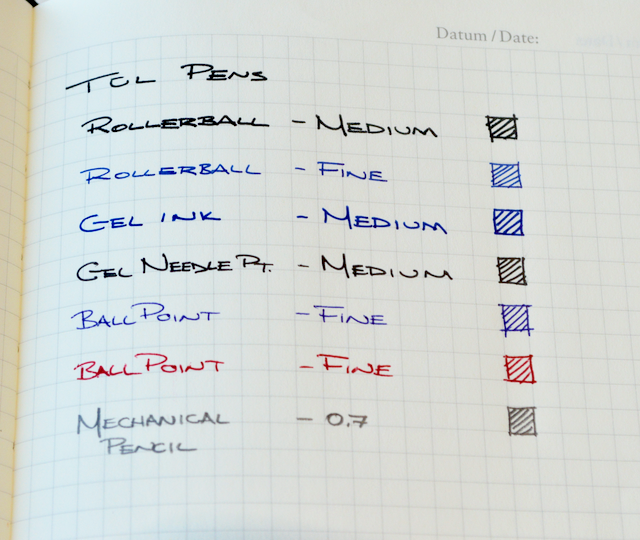 Datum / Date:
TUL PENS
ROLLERBALL - MEDIUM
ROLLERBALL - FINE
GEL INK - MEDIUM
GEL NEEDLE PT. - MEDIUM
BALL POINT - FINE
BALL POINT - FINE
MECHANICAL - 0.7
PENCIL